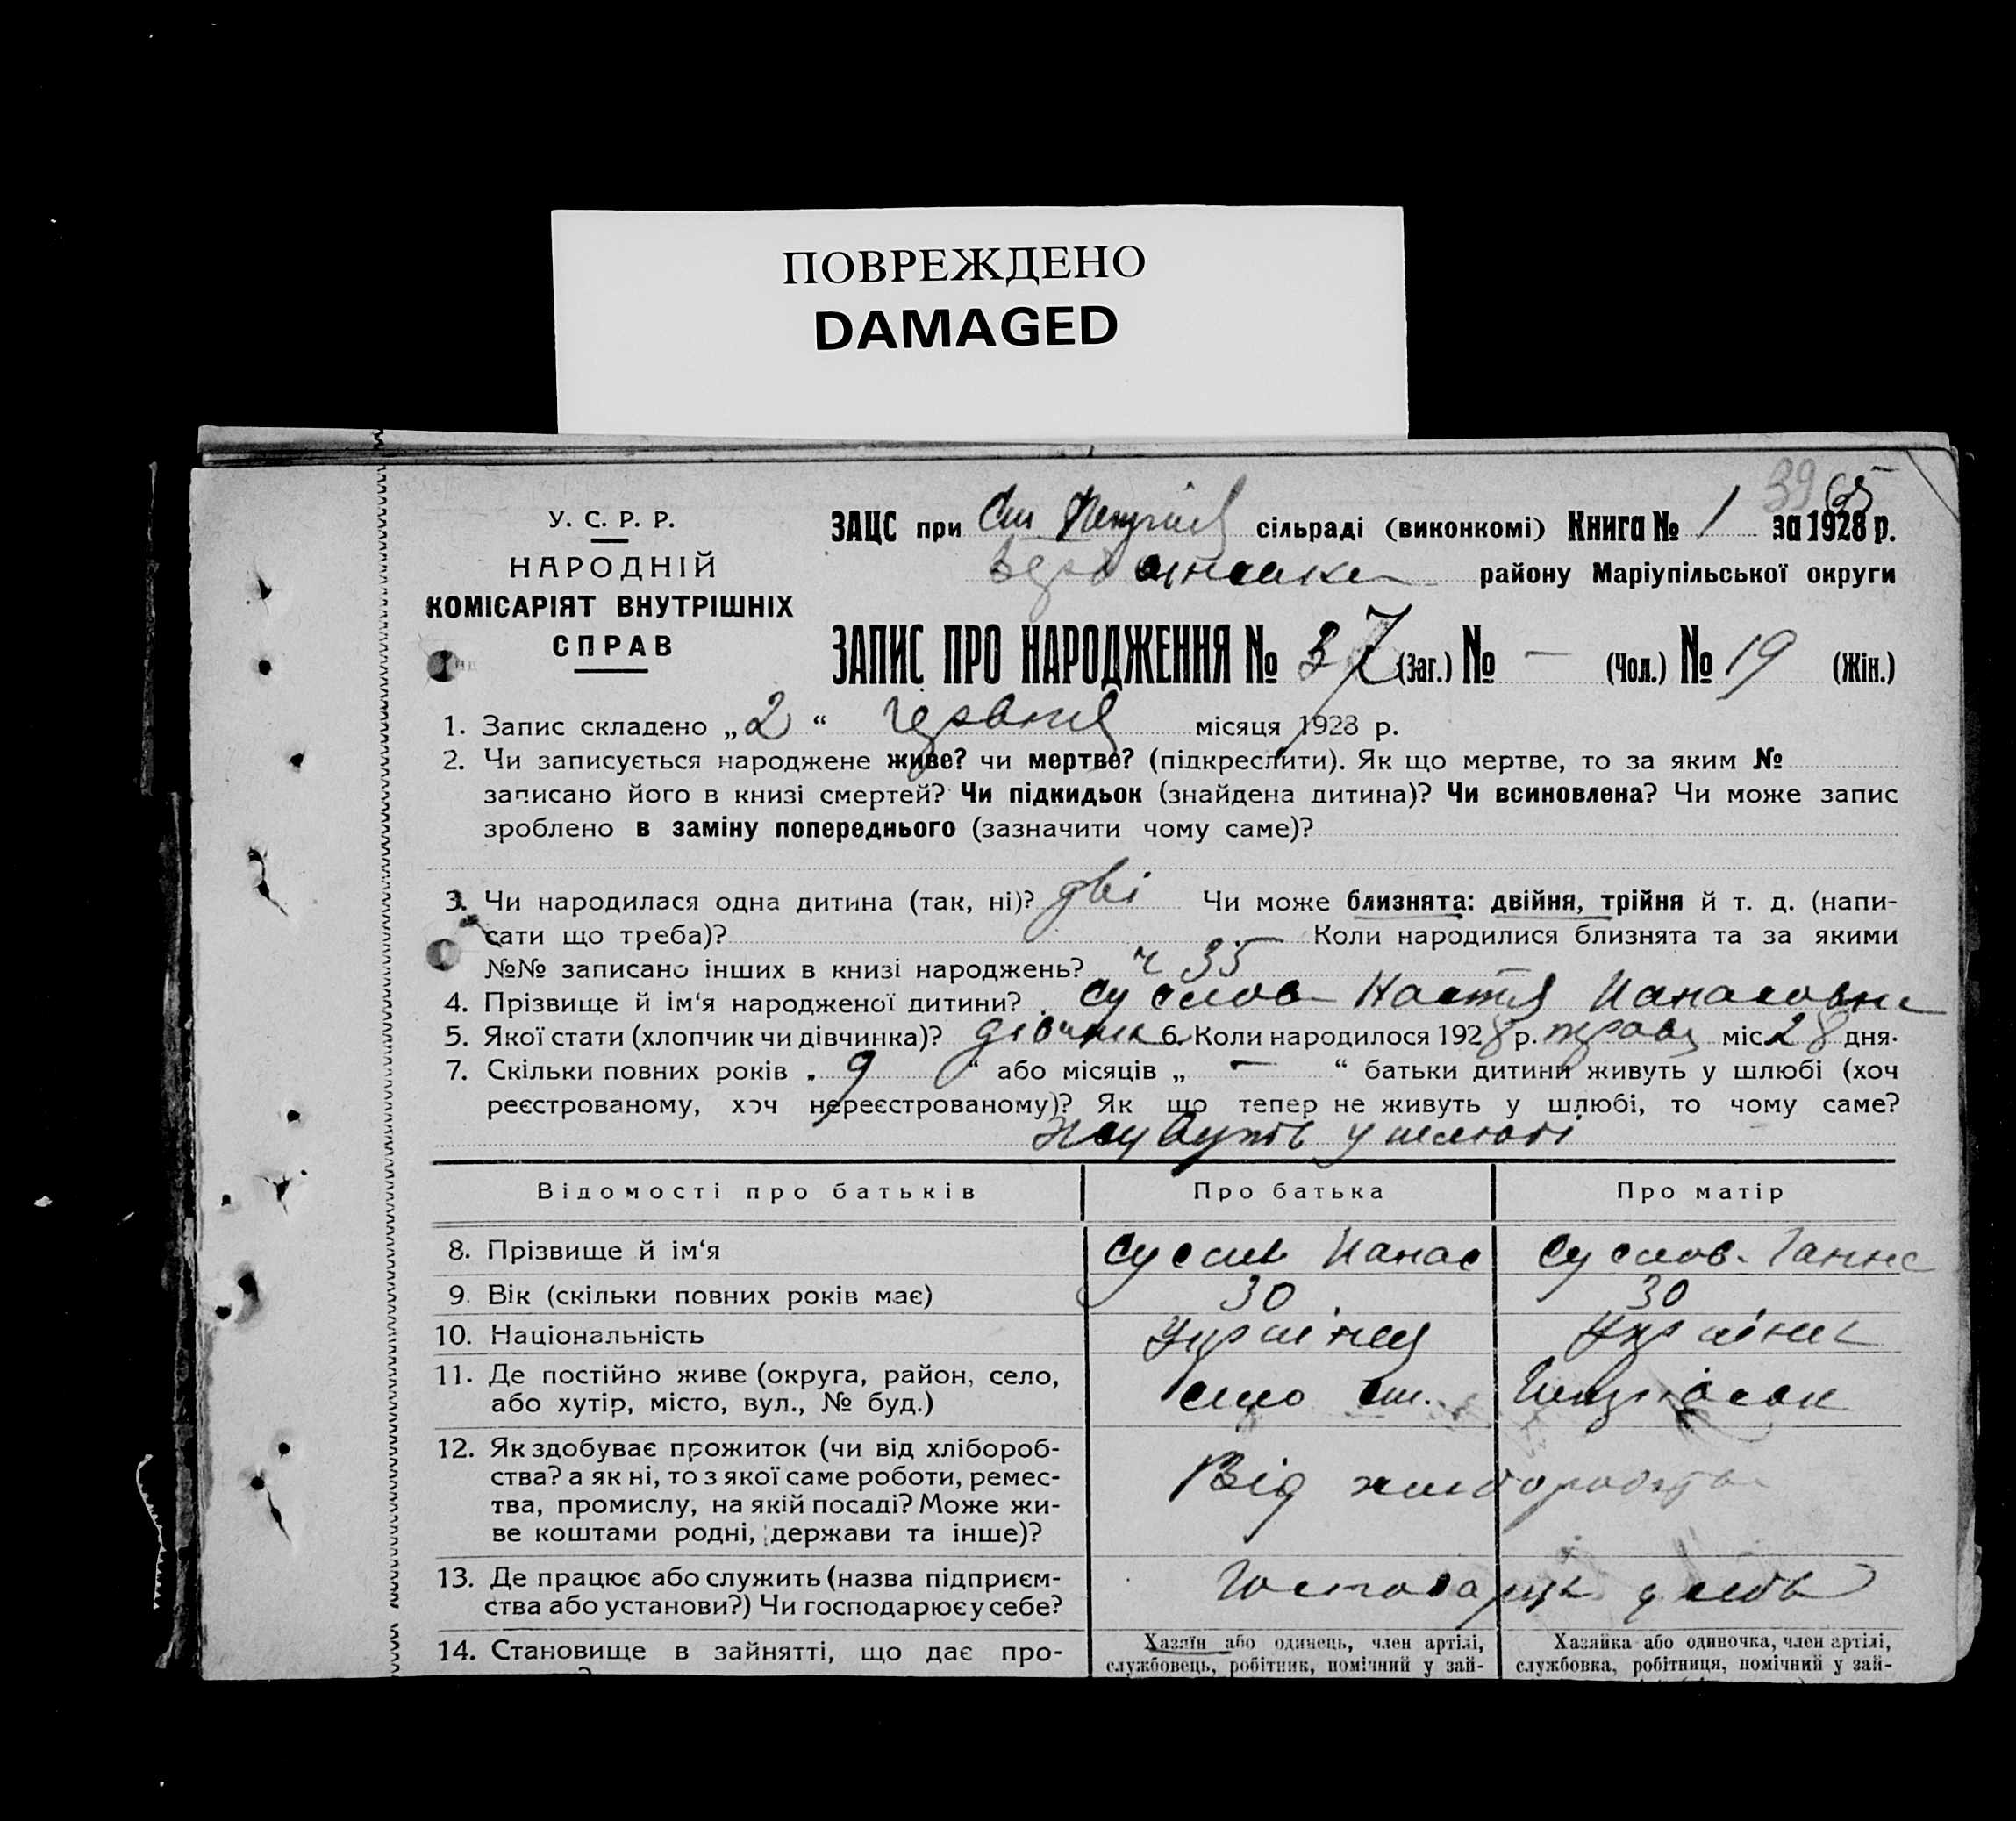 ПОВРЕЖДЕНО
DAMAGED
39 65
У. С. Р. Р.
НАРОДНІЙ
КОМІСАРІЯТ ВНУТРІШНІХ
СПРАВ
ЗАЦС при сільраді (виконкомі) Книга № 1 за 1928 р.
району Маріупільської округи
ЗАПИС ПРО НАРОДЖЕННЯ № 37 (Заг.) № — (Чол.) № 19 (Жін.)
1. Запис складено „2“ червня місяця 1928 р.
2. Чи записується народжене живе? чи мертве? (підкреслити). Як що мертве, то за яким №
записано його в книзі смертей? Чи підкидьок (знайдена дитина)? Чи всиновлена? Чи може запис
зроблено в заміну попереднього (зазначити чому саме)?
3. Чи народилася одна дитина (так, ні)? дві Чи може близнята: двійня, трійня й т. д. (напи-
сати що треба)? Коли народилися близнята та за якими
№№ записано інших в книзі народжень? ч 35
4. Прізвище й ім‘я народженої дитини? Суслов Настя Панасовна
5. Якої стати (хлопчик чи дівчинка)? дівчинка 6. Коли народилося 1928 р. травня міс 28 дня.
7. Скільки повних років „ 9 “ або місяців „ — “ батьки дитини живуть у шлюбі (хоч
реєстрованому, хоч нереєстрованому)? Як що тепер не живуть у шлюбі, то чому саме?
у шлюбі
Відомості про батьків Про батька Про матір
8. Прізвище й ім‘я Суслів Панас Суслов. Ганна
9. Вік (скільки повних років має) 30 30
10. Національність Українець Українка
11. Де постійно живе (округа, район, село,
або хутір, місто, вул., № буд.) село
12. Як здобуває прожиток (чи від хлібороб-
ства? а як ні, то з якої саме роботи, ремес-
тва, промислу, на якій посаді? Може жи-
ве коштами родні, держави та інше)? Від хліборобства
13. Де працює або служить (назва підприєм-
ства або установи?) Чи господарює у себе? у себе
14. Становище в зайнятті, що дає про- Хазяїн або одинець, член артілі, Хазяйка або одиночка, член артілі,
службовець, робітник, помічний у зай- службовка, робітниця, помічний у зай-